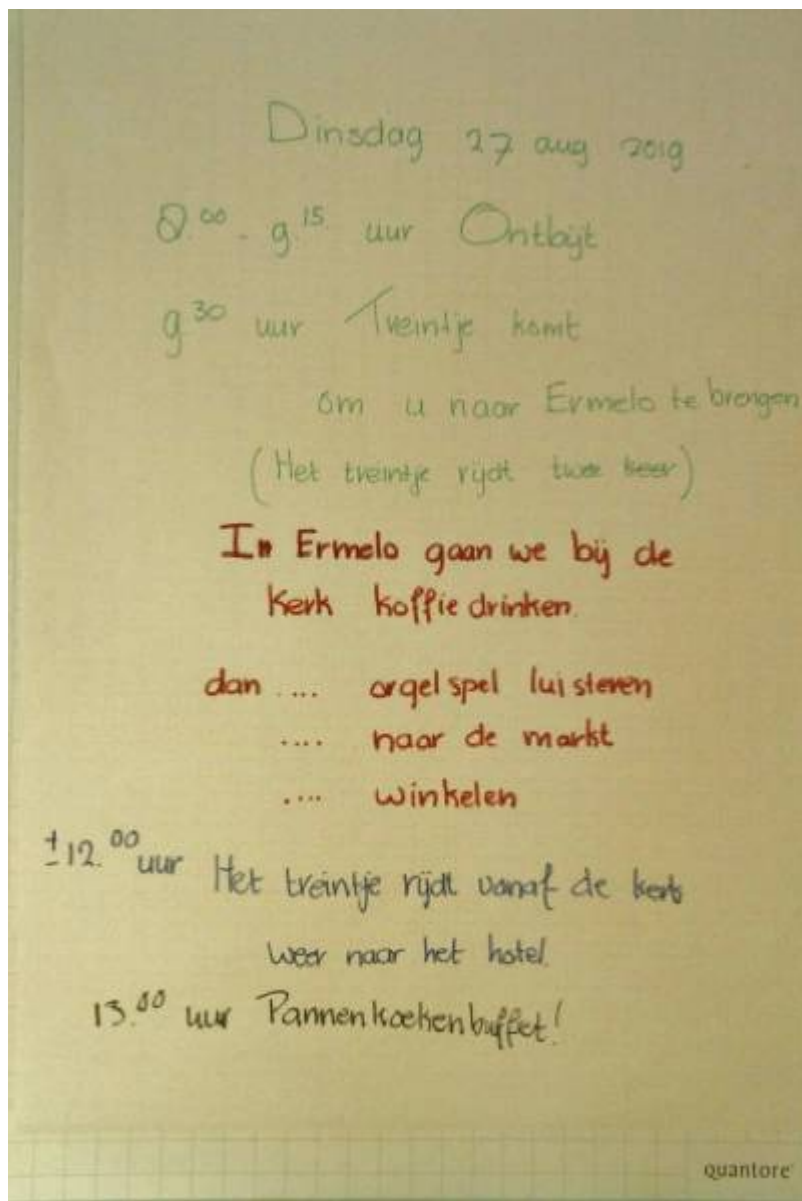 Dinsdag 27 aug 2019
8.00 - 9.15 uur Ontbijt
9 30 uur Treintje komt
om u naar Ermelo te brengen
(Het treintje rijdt twee keer)
In Ermelo gaan we bij de
kerk koffie drinken.
dan .... orgelspel luisteren
.... naar de markt
.... winkelen
±12.00 uur Het treintje rijdt vanaf de kerk
weer naar het hotel.
13.00 uur Pannenkoekenbuffet!
quantore